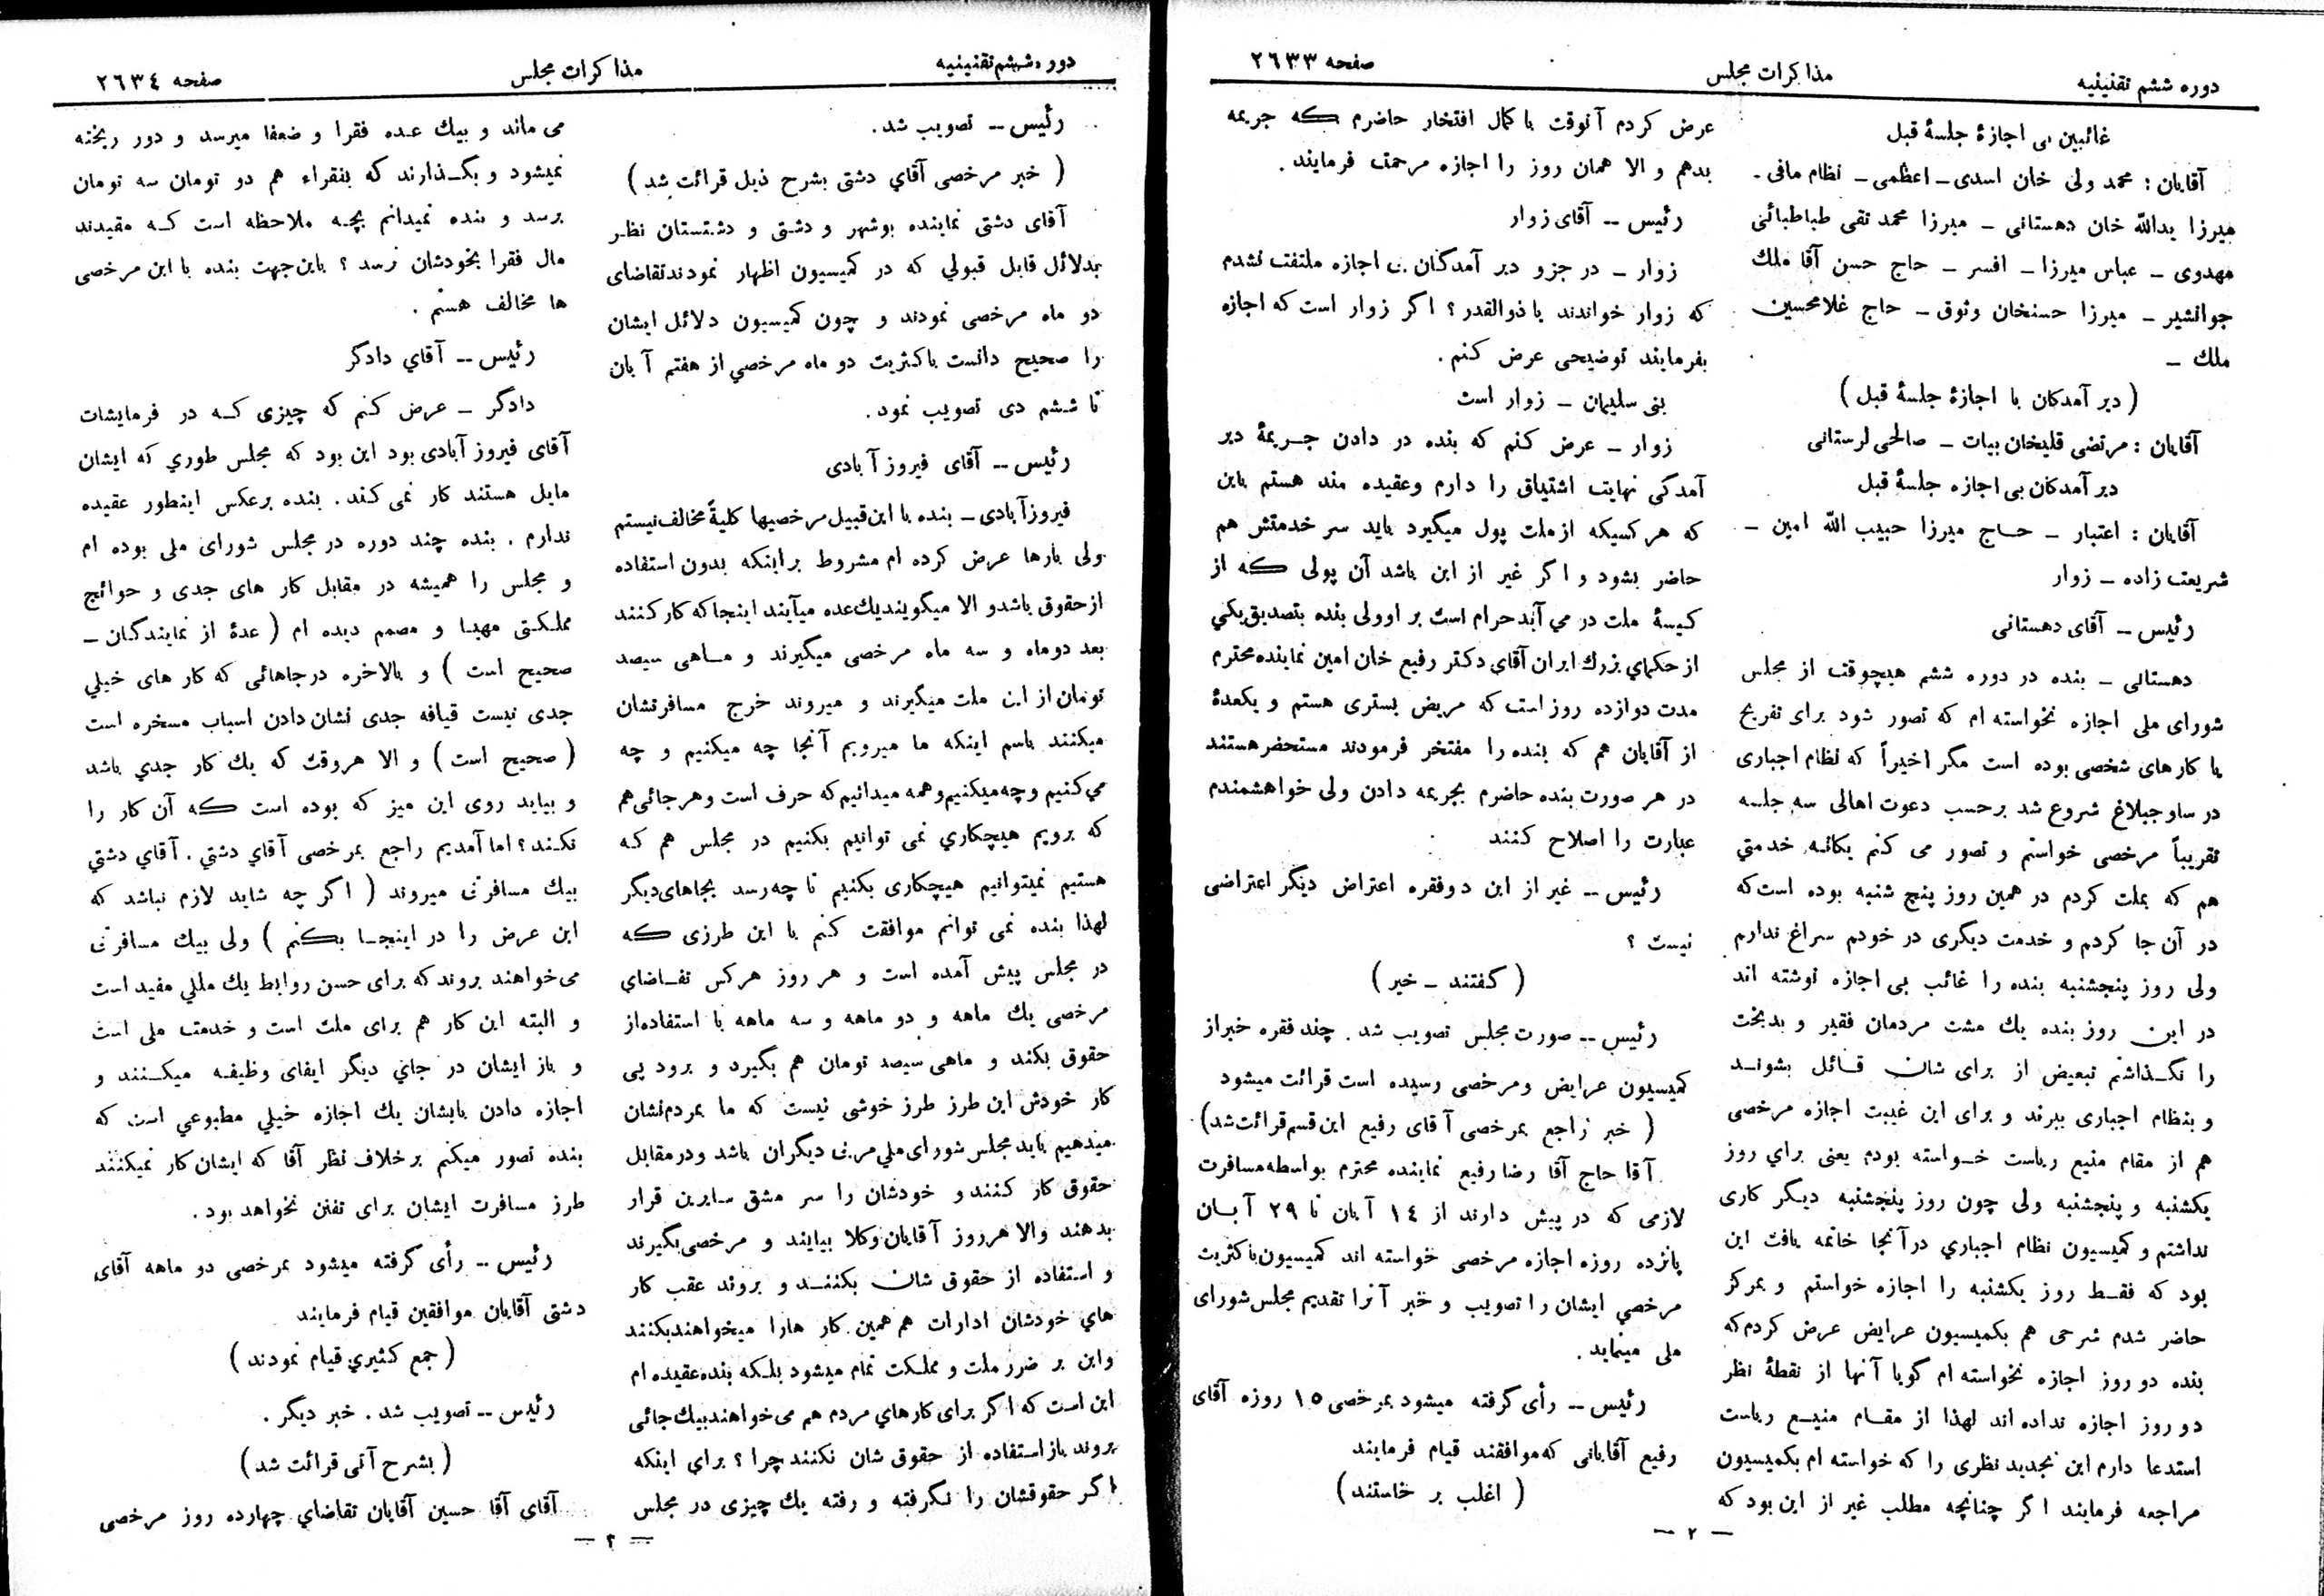 دوره ششم تقنینیه
مذاکرات مجلس
صفحه ۲٦۳۳
غائبین بی اجازهٔ جلسهٔ قبل
آقایان : محمد ولی خان اسدی ـ اعظمی ـ نظام مافی ـ
میرزا یدالله خان دهستانی ـ میرزا محمد تقی طباطبائی
مهدوی ـ عباس میرزا ـ افسر ـ حاج حسن آقا ملك
جوانشیر ـ میرزا حسنخان وثوق ـ حاج غلامحسین
ملك ـ
( دیر آمدکان با اجازهٔ جلسهٔ قبل )
آقایان : مرتضی قلیخان بیات ـ صالحی لرستانی
دیر آمدکان بی اجازه جلسهٔ قبل
آقایان : اعتبار ـ حـاج میرزا حبیب الله امین ـ
شریعت زاده ـ زوار
رئیس -- آقای دهستانی
دهستانی ـ بنده در دوره ششم هیچوقت از مجلس
شورای ملی اجازه نخواسته ام که تصور شود برای تفریح
یا کارهای شخصی بوده است مگر اخیراً که نظام اجباری
در ساوجبلاغ شروع شد برحسب دعوت اهالی سه جلسه
تقریباً مرخصی خواستم و تصور می کنم یکانه خدمتي
هم که بملت کردم در همین روز پنج شنبه بوده است که
در آن جا کردم و خدمت دیگری در خودم سراغ ندارم
ولی روز پنجشنبه بنده را غائب بی اجازه نوشته اند
در این روز بنده یك مشت مردمان فقیر و بدبخت
را نگـذاشتم تبعیض از برای شان قـائل بشونـد
و بنظام اجباری ببرند و برای این غیبت اجازه مرخصی
هم از مقام منیع ریاست خـواسته بودم یعنی براي روز
یکشنبه و پنجشنبه ولی چون روز پنجشنبه دیگر کاری
نداشتم و کمیسیون نظام اجباري در آنجا خاتمه یافت این
بود که فقـط روز یکشنبه را اجازه خواستم و بمرکز
حاضر شدم شرحی هم بکمیسیون عرایض عرض کردم که
بنده دو روز اجازه نخواسته ام گویا آنها از نقطهٔ نظر
دو روز اجازه نداده اند لهذا از مقـام منیـع ریاست
استدعا دارم این تجدید نظری را که خواسته ام بکمیسیون
مراجعه فرمایند اگر چنانچه مطلب غیر از این بود که
عرض کردم آنوقت با کمال افتخار حاضرم که جریمه
بدهم و الا همان روز را اجازه مرحمت فرمایند .
رئیس -- آقای زوار
زوار ـ در جزو دیر آمدکان بی اجازه ملتفت نشدم
که زوار خواندند یا ذوالقدر ؟ اگر زوار است که اجازه
بفرمایند توضیحی عرض کنم .
بنی سلیمان ـ زوار است
زوار ـ عرض کنم که بنده در دادن جـریمهٔ دیر
آمدگی نهایت اشتیاق را دارم وعقیده مند هستم باین
که هر کسیکه از ملت پول میگیرد باید سر خدمتش هم
حاضر بشود و اگر غیر از این باشد آن پولی که از
کیسهٔ ملت در مي آید حرام است بر او ولی بنده بتصدیق یکي
از حکماي بزرك ایران آقای دکتر رفیع خان امین نماینده محترم
مدت دوازده روز است که مریض بستری هستم و یکعدهٔ
از آقایان هم که بنده را مفتخر فرمودند مستحضر هستند
در هر صورت بنده حاضرم بجریمه دادن ولی خواهشمندم
عبارت را اصلاح کنند
رئیس -- غیر از این دوفقره اعتراض دیگر اعتراضی
نیست ؟
( گفتند ـ خیر )
رئیس -- صورت مجلس تصویب شد . چند فقره خبر از
کمیسیون عرایض ومرخصی رسیده است قرائت میشود
( خبر راجع بمرخصی آقای رفیع این قسم قرائت شد )
آقا حاج آقا رضا رفیع نماینده محترم بواسطه مسافرت
لازمی که در پیش دارند از ۱٤ آبان تا ۲۹ آبـان
پانزده روزه اجازه مرخصی خواسته اند کمیسیون باکثریت
مرخصي ایشان را تصویب و خبر آنرا تقدیم مجلس شورای
ملی مینماید .
رئیس -- رأی گرفته میشود بمرخصی ۱٥ روزه آقای
رفیع آقایانی که موافقند قیام فرمایند
( اغلب بر خاستند )
— ۲ —
دوره ششم تقنینیه
مذاکرات مجلس
صفحه ۲٦۳٤
رئیس -- تصویب شد .
( خبر مرخصی آقاي دشتی بشرح ذیل قرائت شد )
آقای دشتی نماینده بوشهر و دشتی و دشتستان نظر
بدلائل قابل قبولي که در کمیسیون اظهار نمودند تقاضای
دو ماه مرخصی نمودند و چون کمیسیون دلائل ایشان
را صحیح دانست باکثریت دو ماه مرخصي از هفتم آبان
تا ششم دی تصویب نمود .
رئیس -- آقای فیروز آبادی
فیروزآبادی ـ بنده با این قبیل مرخصیها کلیةً مخالف نیستم
ولی بارها عرض کرده ام مشروط بر اینکه بدون استفاده
از حقوق باشد و الا میگویند یك عده میآیند اینجا که کار کنند
بعد دوماه و سه ماه مرخصی میگیرند و مـاهی سیصد
تومان از این ملت میگیرند و میروند خرج مسافرتشان
میکنند باسم اینکه ما میرویم آنجا چه میکنیم و چه
می کنیم و چه میکنیم وهمه میدانیم که حرف است وهر جائی هم
که برویم هیچکاري نمی توانیم بکنیم در مجلس هم که
هستیم نمیتوانیم هیچکاری بکنیم تا چه رسد بجاهای دیگر
لهذا بنده نمی توانم موافقت کنم با این طرزی که
در مجلس پیش آمده است و هر روز هرکس تقـاضاي
مرخصی یك ماهه و دو ماهه و سه ماهه با استفاده از
حقوق بکند و ماهی سیصد تومان هم بگیرد و برود پی
کار خودش این طرز طرز خوشی نیست که ما بمردم نشان
میدهیم باید مجلس شورای ملی مربی دیگران باشد ودر مقابل
حقوق کار کنند و خودشان را سر مشق سایرین قرار
بدهند والا هرروز آقایان وکلا بیایند و مرخصی بگیرند
و استفاده از حقوق شان بکننـد و بروند عقب کار
هاي خودشان ادارات هم همین کار هارا میخواهند بکنند
واین بر ضرر ملت و مملکت تمام میشود بلکه بنده عقیده ام
این است که اگر برای کارهاي مردم هم می خواهند بیك جائی
بروند باز استفاده از حقوق شان نکنند چرا ؟ برای اینکه
اگر حقوقشان را نگرفته و رفته یك چیزی در مجلس
می ماند و بیك عده فقرا و ضعفا میرسد و دور ریخته
نمیشود و بگـذارند که بفقراء هم دو تومان سه تومان
برسد و بنده نمیدانم بچه ملاحظه است کـه مقیدند
مال فقرا بخودشان نرسد ؟ باین جهت بنده با این مرخصی
ها مخالف هستم .
رئیس -- آقاي دادگر
دادگر ـ عرض کنم که چیزی کـه در فرمایشات
آقای فیروز آبادی بود این بود که مجلس طوري که ایشان
مایل هستند کار نمی کند . بنده برعکس اینطور عقیده
ندارم . بنده چند دوره در مجلس شورای ملی بوده ام
و مجلس را همیشه در مقابل کار های جدی و حوائج
مملکتی مهیـا و مصمم دیده ام ( عدهٔ از نمایندگـان ـ
صحیح است ) و بالاخره درجاهائی که کار های خیلي
جدی نیست قیافه جدی نشان دادن اسباب مسخره است
( صحیح است ) و الا هروقت که یك کار جدي باشد
و بیاید روی این میز که بوده است که آن کار را
نکند ؟ اما آمدیم راجع بمرخصی آقاي دشتي . آقاي دشتي
بیك مسافرتی میروند ( اگر چه شاید لازم نباشد که
این عرض را در اینجـا بکنم ) ولی بیك مسافرتی
می خواهند بروند که برای حسن روابط یك مللي مفید است
و البته این کار هم برای ملت است و خدمت ملی است
و باز ایشان در جاي دیگر ایفای وظیفـه میکـنند و
اجازه دادن بایشان یك اجازه خیلي مطبوعي است که
بنده تصور میکنم بر خلاف نظر آقا که ایشان کار نمیکنند
طرز مسافرت ایشان برای تفنن نخواهد بود .
رئیس -- رأی گرفته میشود بمرخصی دو ماهه آقای
دشتی آقایان موافقین قیام فرمایند
( جمع کثیري قیام نمودند )
رئیس -- تصویب شد . خبر دیگر .
( بشرح آتی قرائت شد )
آقای آقا حسین آقایان تقاضاي چهارده روز مرخصی
— ۲ —